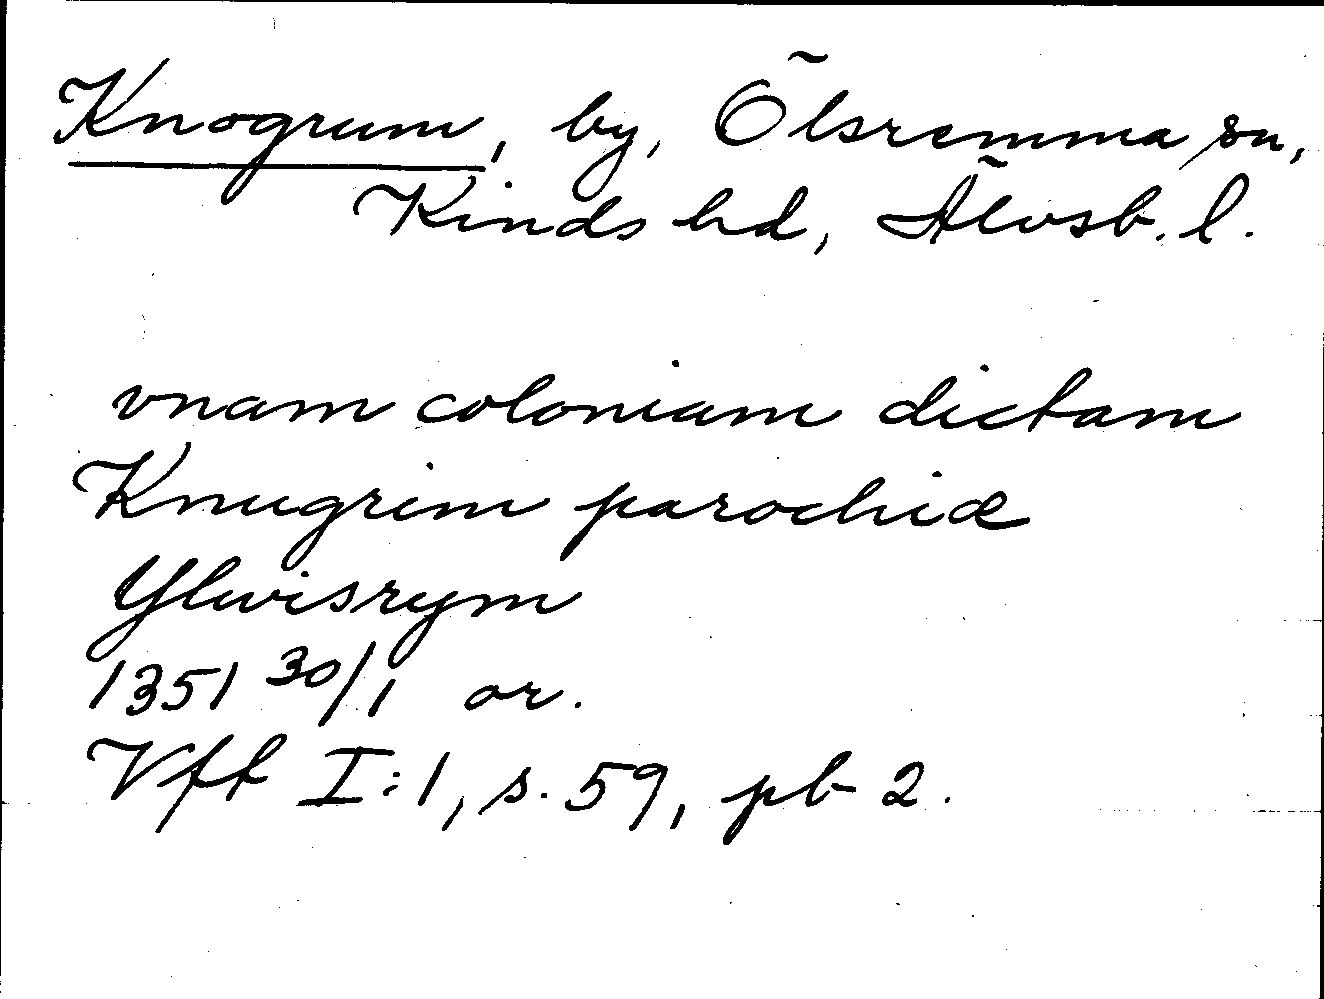 Knogrum, by, Ölsremma sn,
Kinds hd, Älvsb. l.
vnam coloniam dictam
Knugrim parochiæ
Ylwisrym
1351 30/1 or.
Vff I:1, s. 59, pb 2.